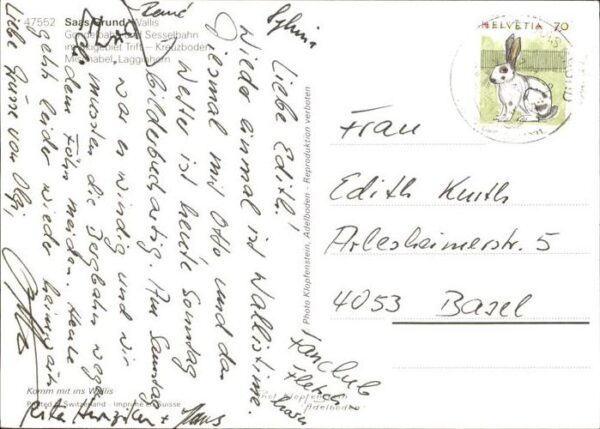 47552 Saas Grund / Wallis
Gondelbahn und Sesselbahn
im Skigebiet Trift – Kreuzboden
Mischabel, Lagginhorn
HELVETIA 70
Liebe Edith!
Wieder einmal ist Wallistime.
Diesmal mit Otto und das
Wetter ist heute Sonntag
bilderbuchartig. Am Samstag
war es windig und wir
mussten die Bergbahn wegen
dem Föhn meiden. Heute
geht leider wieder heimwärts
Liebe Grüsse von Olgi,
René
Sylvia
Rita Hunziker + Hans
Fanclub
Frau
Edith Kunth
Arlesheimerstr. 5
4053 Basel
Photo Klopfenstein, Adelboden - Reproduktion verboten
Komm mit ins Wallis
Printed in Switzerland - Imprimé en Suisse
Adelboden